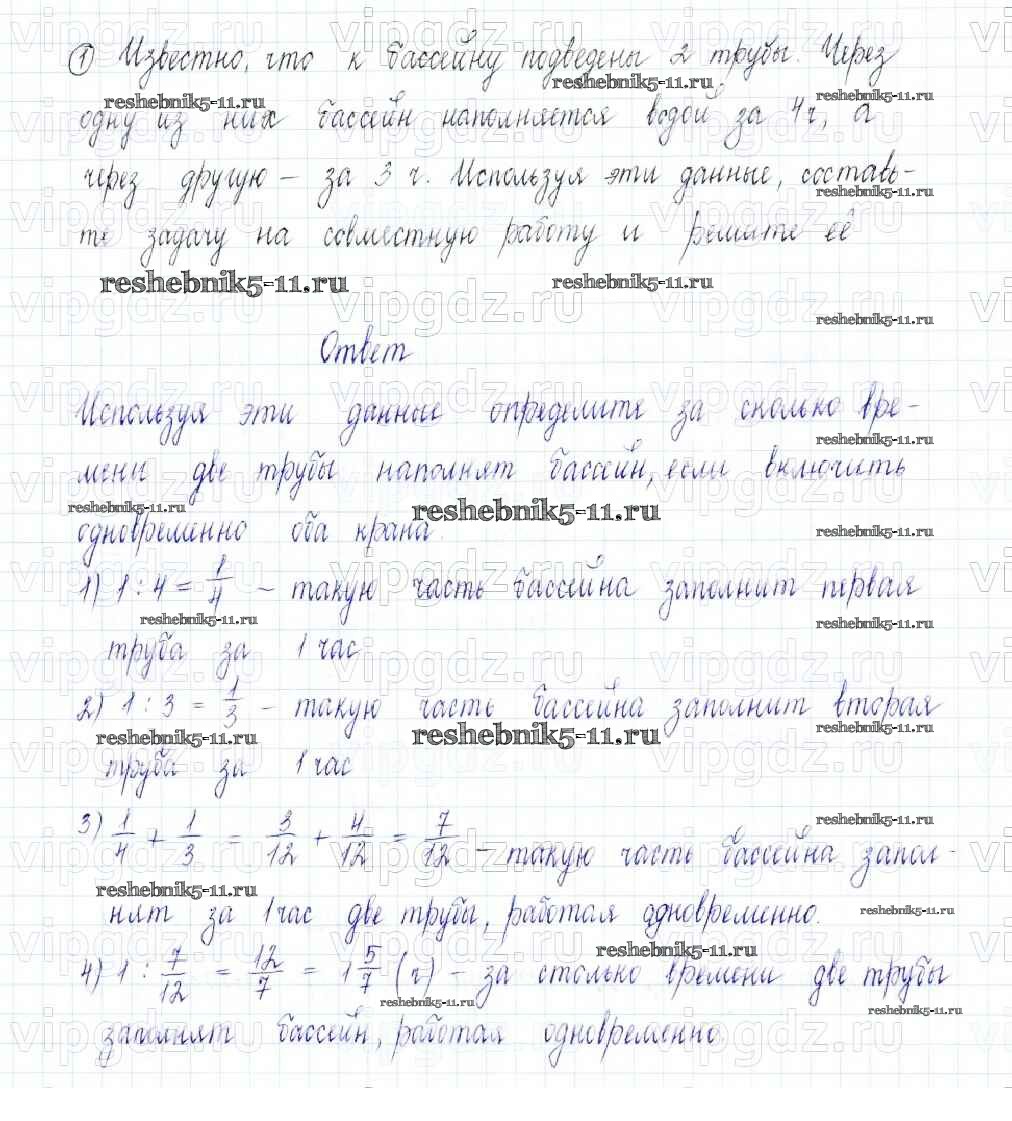 ① Известно, что к бассейну подведены 2 трубы. Через
одну из них бассейн наполняется водой за 4ч, а
через другую – за 3 ч. Используя эти данные, составь-
те задачу на совместную работу и решите её
Ответ
Используя эти данные определите за сколько вре-
мени две трубы наполнят бассейн, если включить
одновременно оба крана.
1) 1 : 4 = 1/4 – такую часть бассейна заполнит первая
труба за 1 час
2) 1 : 3 = 1/3 – такую часть бассейна заполнит вторая
труба за 1 час
3) 1/4 + 1/3 = 3/12 + 4/12 = 7/12 – такую часть бассейна запол-
нят за 1 час две трубы, работая одновременно.
4) 1 : 7/12 = 12/7 = 1 5/7 (ч) – за столько времени две трубы
заполнят бассейн, работая одновременно.
reshebnik5-11.ru
vipgdz.ru